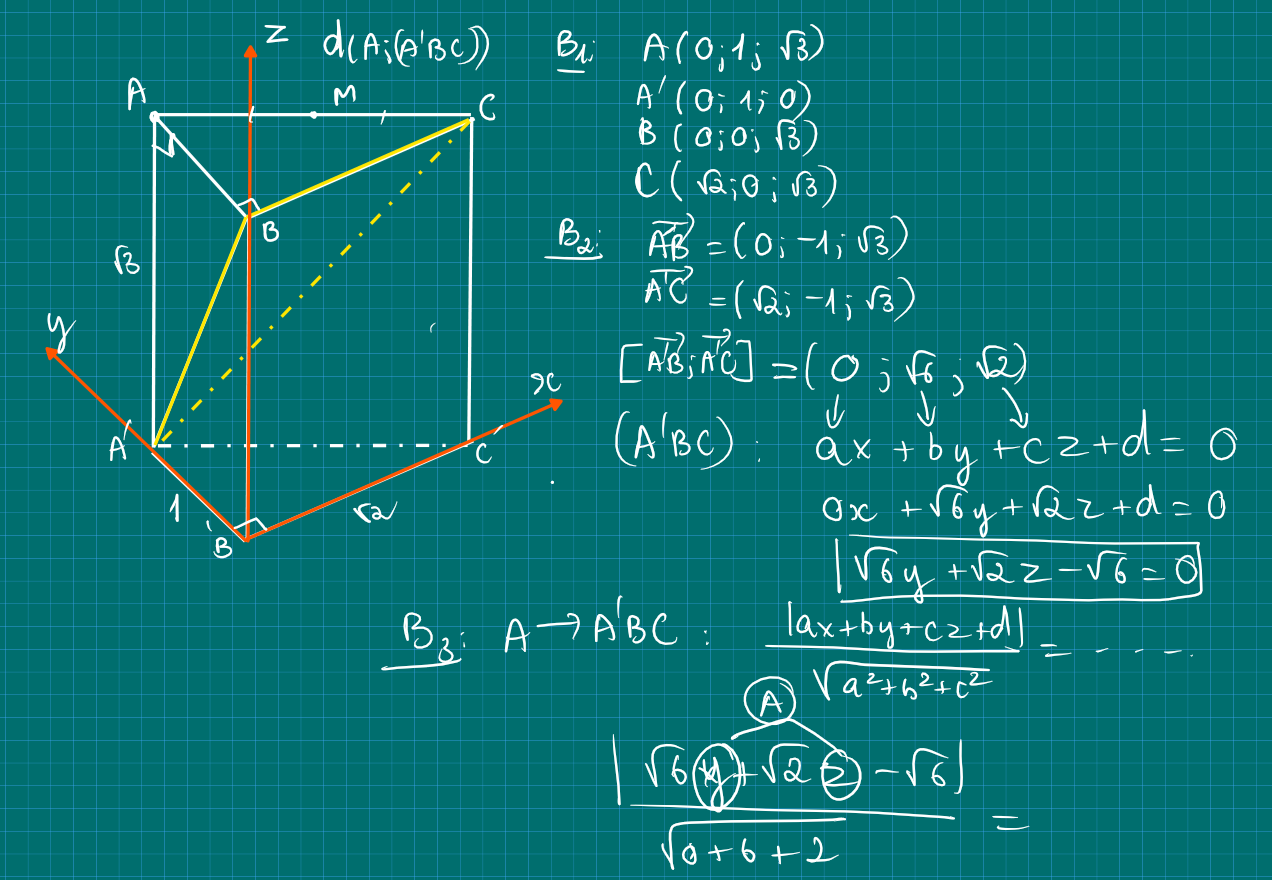 z
d(A;(A'BC))
A
M
C
B
√3
y
x
A'
C'
1
√2
B'
B1: A(0;1;√3)
A'(0;1;0)
B(0;0;√3)
C(√2;0;√3)
B2: A'B = (0;-1;√3)
A'C = (√2;-1;√3)
[A'B;A'C] = (0;√6;√2)
(A'BC): ax + by + cz + d = 0
0x + √6y + √2z + d = 0
√6y + √2z - √6 = 0
B3: A → A'BC: |ax+by+cz+d| / √a²+b²+c² = .....
A
|√6y + √2z - √6| / √0+6+2 =